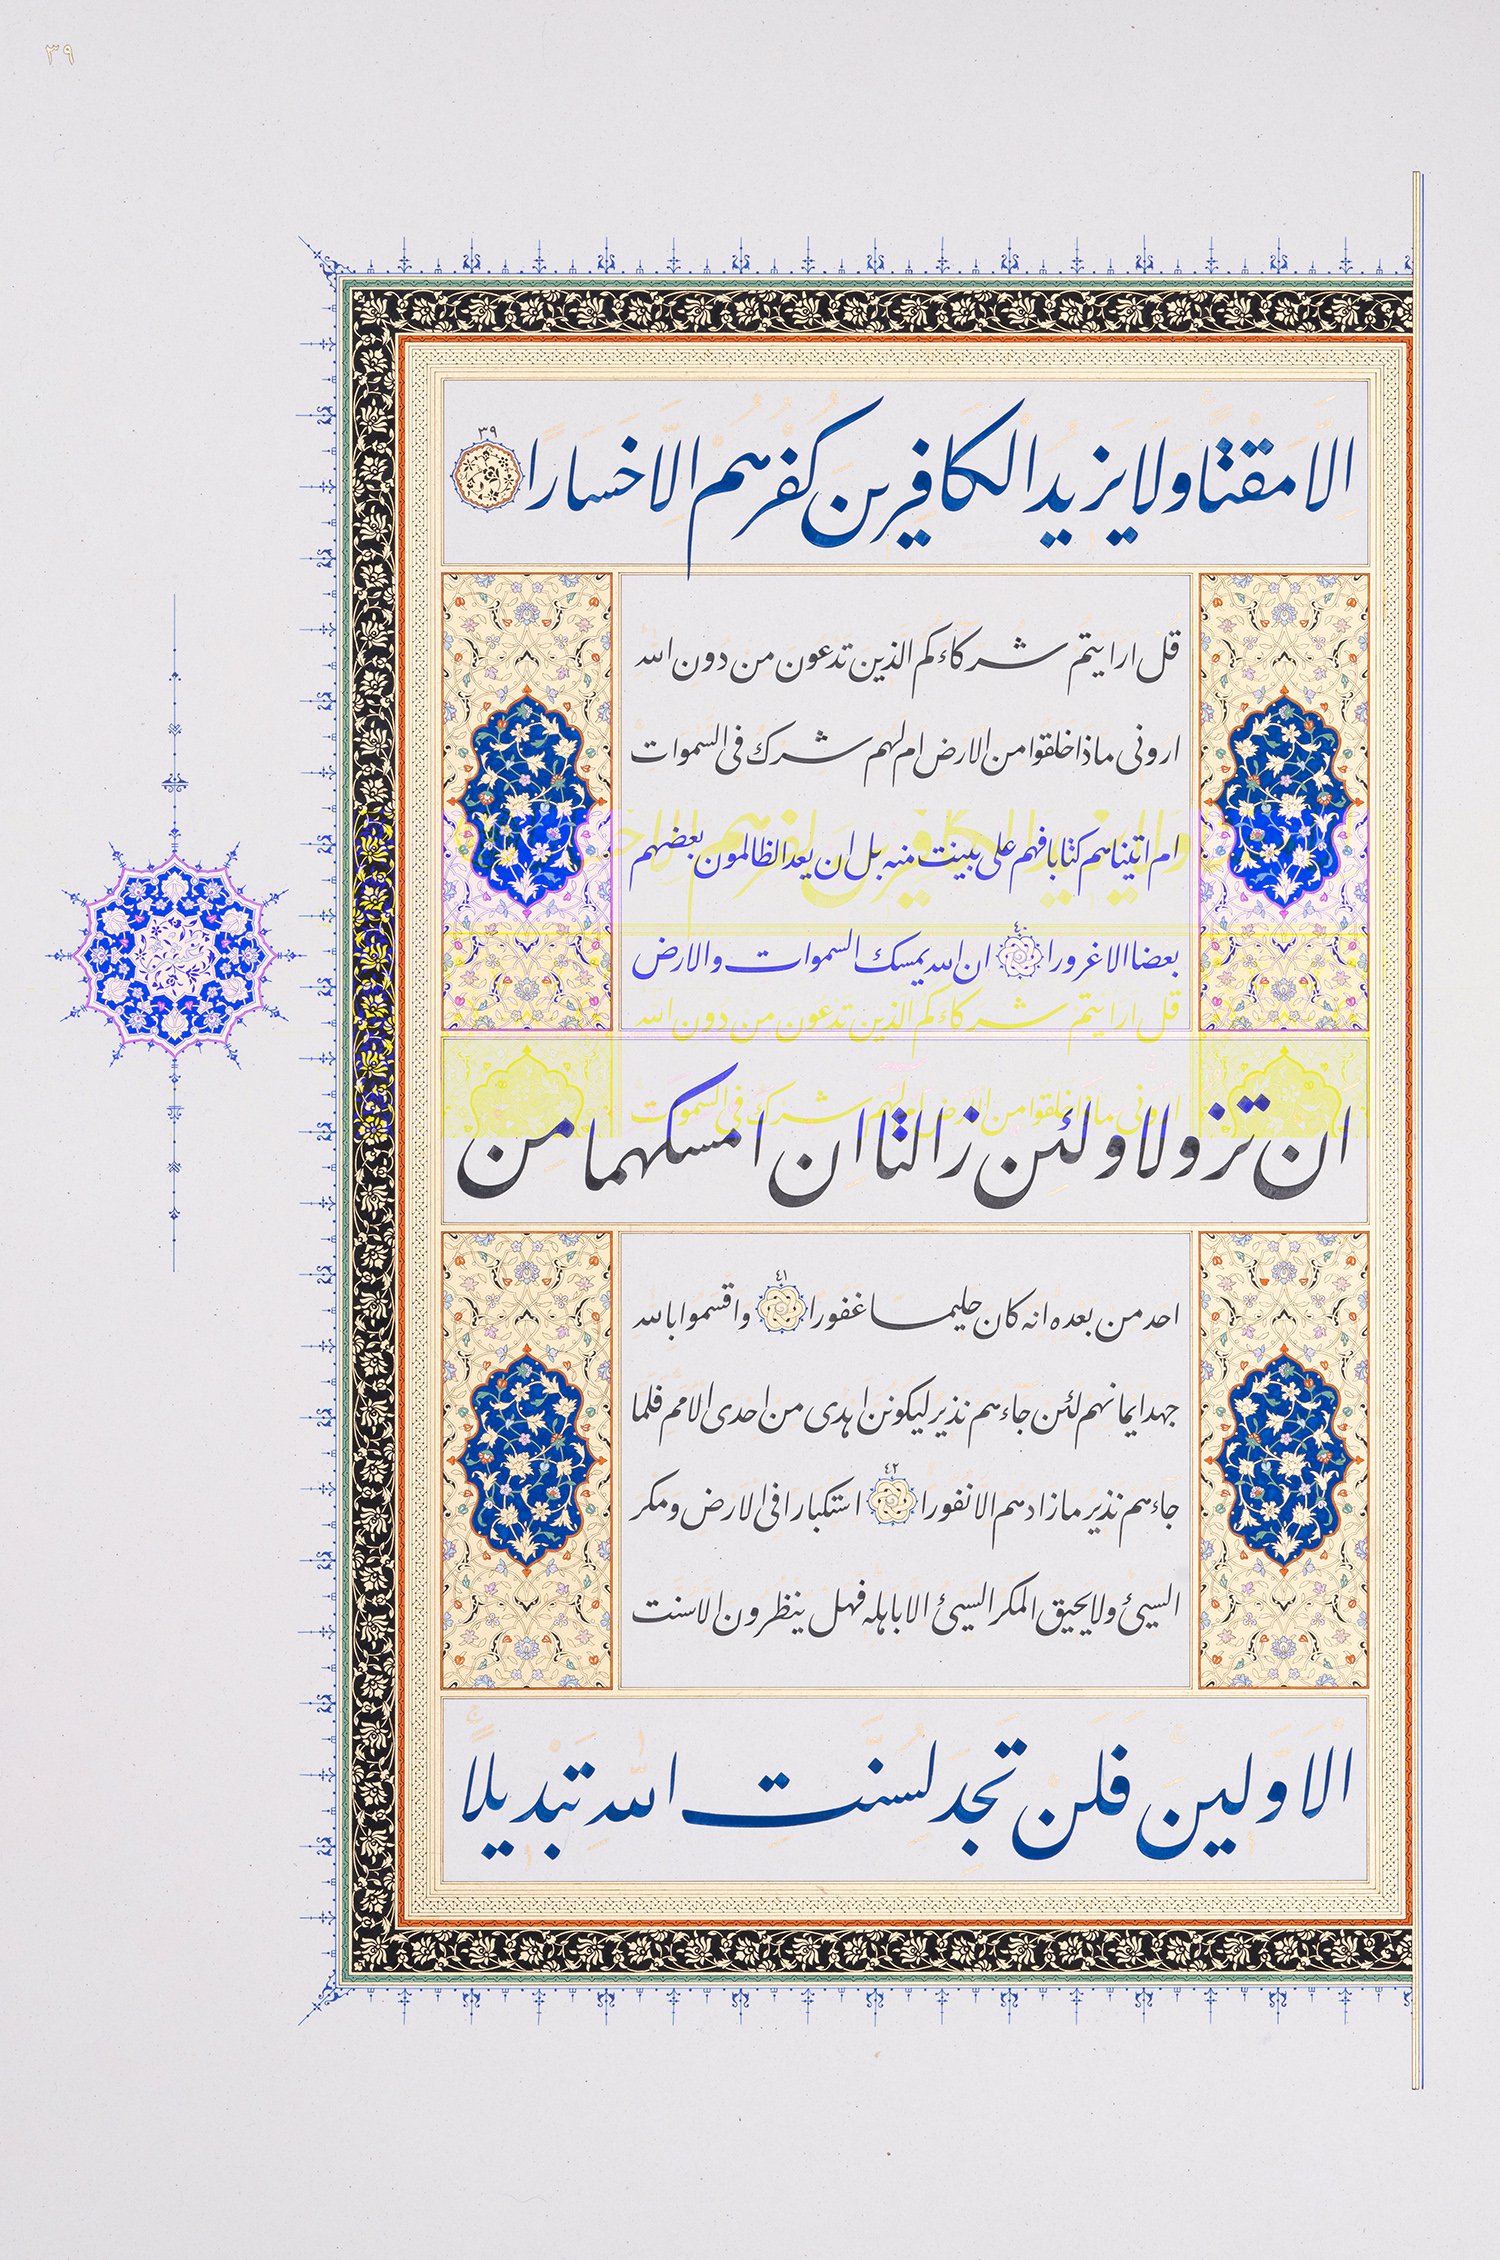 ٣٩
اِلّا مَقتًا ولا يَزيدُ الكافِرين كُفرُهُم اِلّا خَسَارًا ٣٩
قل ارايتم شركاءكم الذين تدعون من دون الله
ارونى ماذا خلقوا من الارض ام لهم شرك فى السموات
ام اتيناهم كتابا فهم على بينت منه بل ان يعد الظالمون بعضهم
بعضا الا غرورا ٤٠ ان الله يمسك السموات والارض
ان تزولا ولئن زالتا اِن امسكهما مِن
احد من بعده انه كان حليما غفورا ٤١ واقسموا بالله
جهد ايمانهم لئن جاءهم نذير ليكونن اهدى من احدى الامم فلما
جاءهم نذير مازادهم الا نفورا ٤٢ استكبارا فى الارض ومكر
السيئ ولا يحيق المكر السيئ الا باهله فهل ينظرون الا سنت
الاوَّلين فَلَن تَجَد لسُنَّتِ اللهِ تَبديلًا